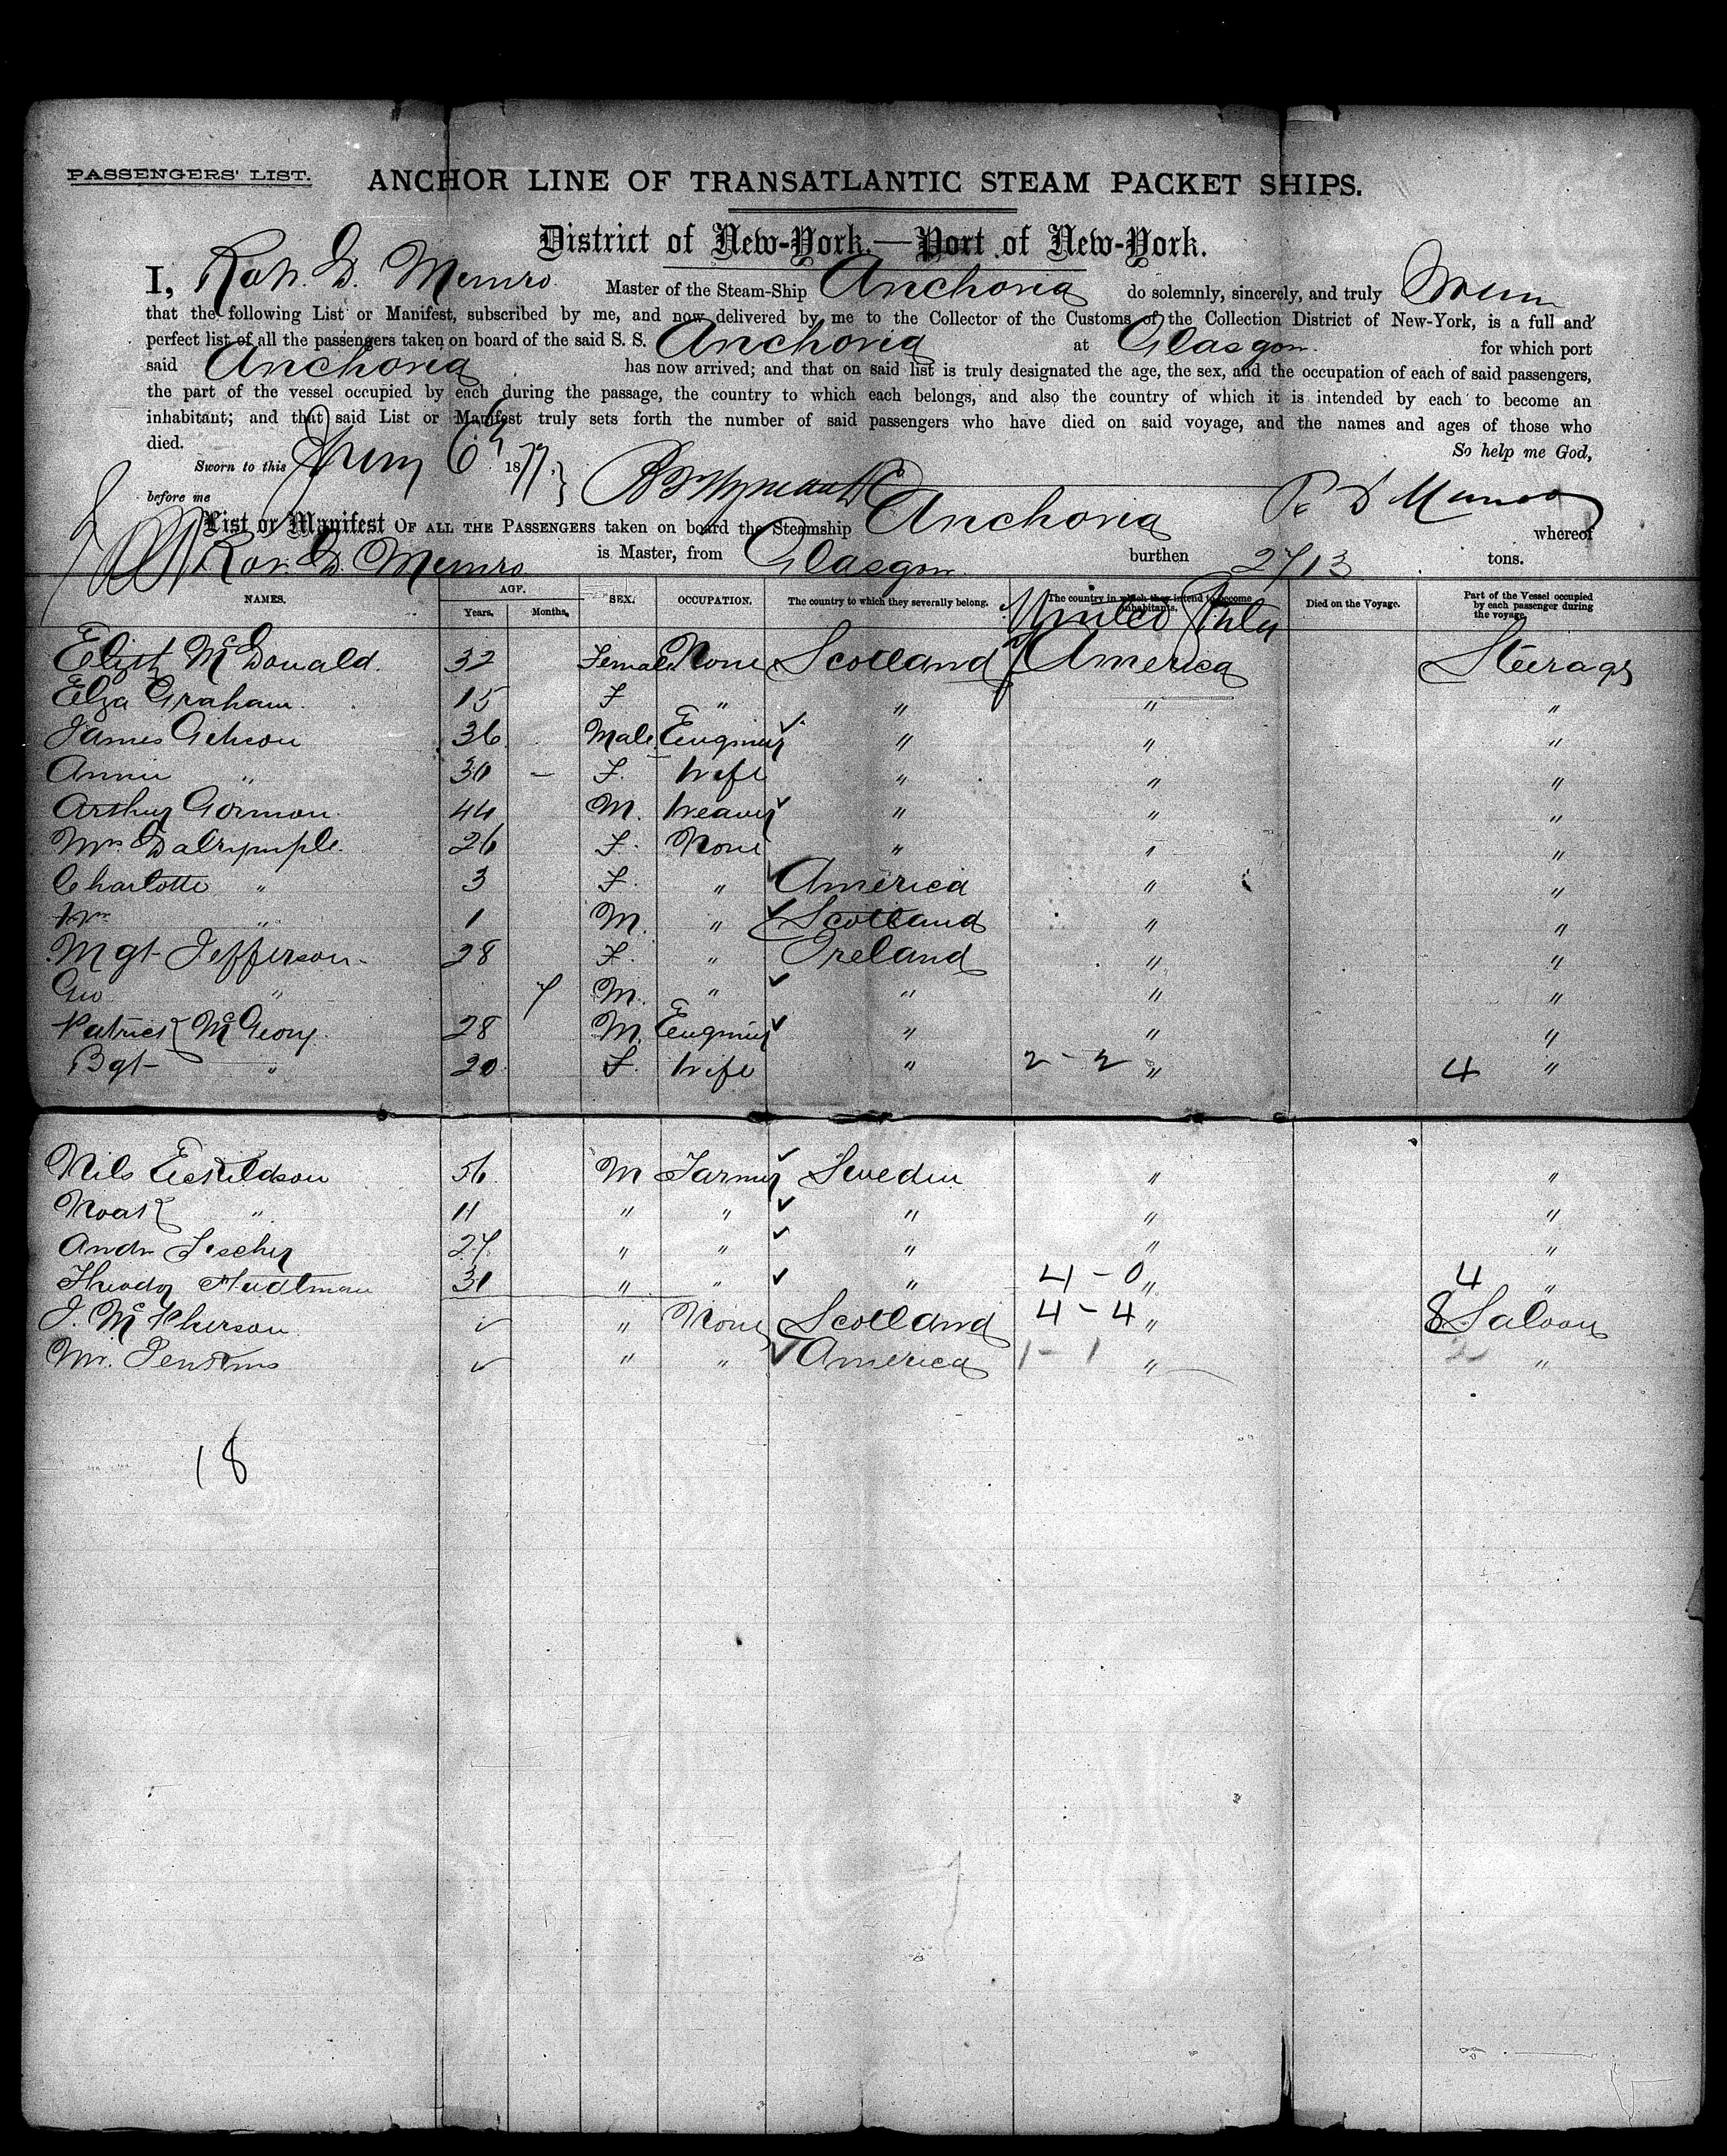 PASSENGERS' LIST. ANCHOR LINE OF TRANSATLANTIC STEAM PACKET SHIPS.
District of New-York.—Port of New-York.
I, Robt. D. Munro Master of the Steam-Ship Anchoria do solemnly, sincerely, and truly
that the following List or Manifest, subscribed by me, and now delivered by me to the Collector of the Customs of the Collection District of New-York, is a full and
perfect list of all the passengers taken on board of the said S. S. Anchoria at Glasgow for which port
said Anchoria has now arrived; and that on said list is truly designated the age, the sex, and the occupation of each of said passengers,
the part of the vessel occupied by each during the passage, the country to which each belongs, and also the country of which it is intended by each to become an
inhabitant; and that said List or Manifest truly sets forth the number of said passengers who have died on said voyage, and the names and ages of those who
died. So help me God,
Sworn to this 6th 1877. }
before me R D Munro
List or Manifest OF ALL THE PASSENGERS taken on board the Steamship Anchoria whereof
Robt. D. Munro is Master, from Glasgow burthen 2713 tons.
NAMES. AGE. Years. Months. SEX. OCCUPATION. The country to which they severally belong. The country in which they intend to become inhabitants. Died on the Voyage. Part of the Vessel occupied by each passenger during the voyage.
Elizth McDonald. 32 Female None Scotland United States of America Steerage
Eliza Graham. 15 F " " " "
James Gibson 36 Male Engineer ✓ " " "
Annie " 30 – F. Wife " " "
Arthur Gorman. 44 M. Weaver ✓ " " "
Mrs Dalrymple. 26 F. None " " "
Charlotte " 3 F. " ✓ America " "
Wm " 1 M. " ✓ Scotland " "
Mgt Jefferson 28 F. " Ireland " "
Geo " 7 M. " ✓ " " "
Patrick McGeory. 28 M. Engineer ✓ " " "
Bgt " 20 F. Wife " 2-2 " 4 "
Nils Eskildson 56 M Farmer ✓ Sweden " "
Noak " 11 " " ✓ " " "
Andr Fischer 27 " " ✓ " " "
Theodor 31 " " ✓ " 4-0 " 4 "
J. McPherson ✓ " None Scotland 4-4 " 8 Saloon
Mr. Jenkins ✓ " " ✓ America 1-1 " 2 "
18